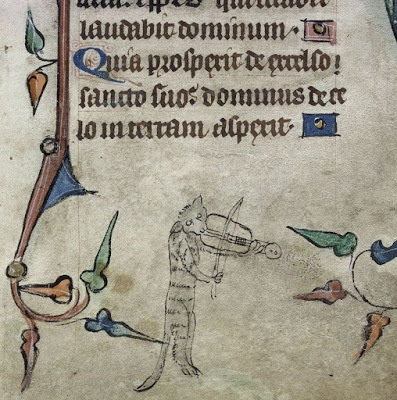 laudabit dominum.
Quia prospexit de excelso
sancto suo: dominus de ce
lo in terram aspexit.